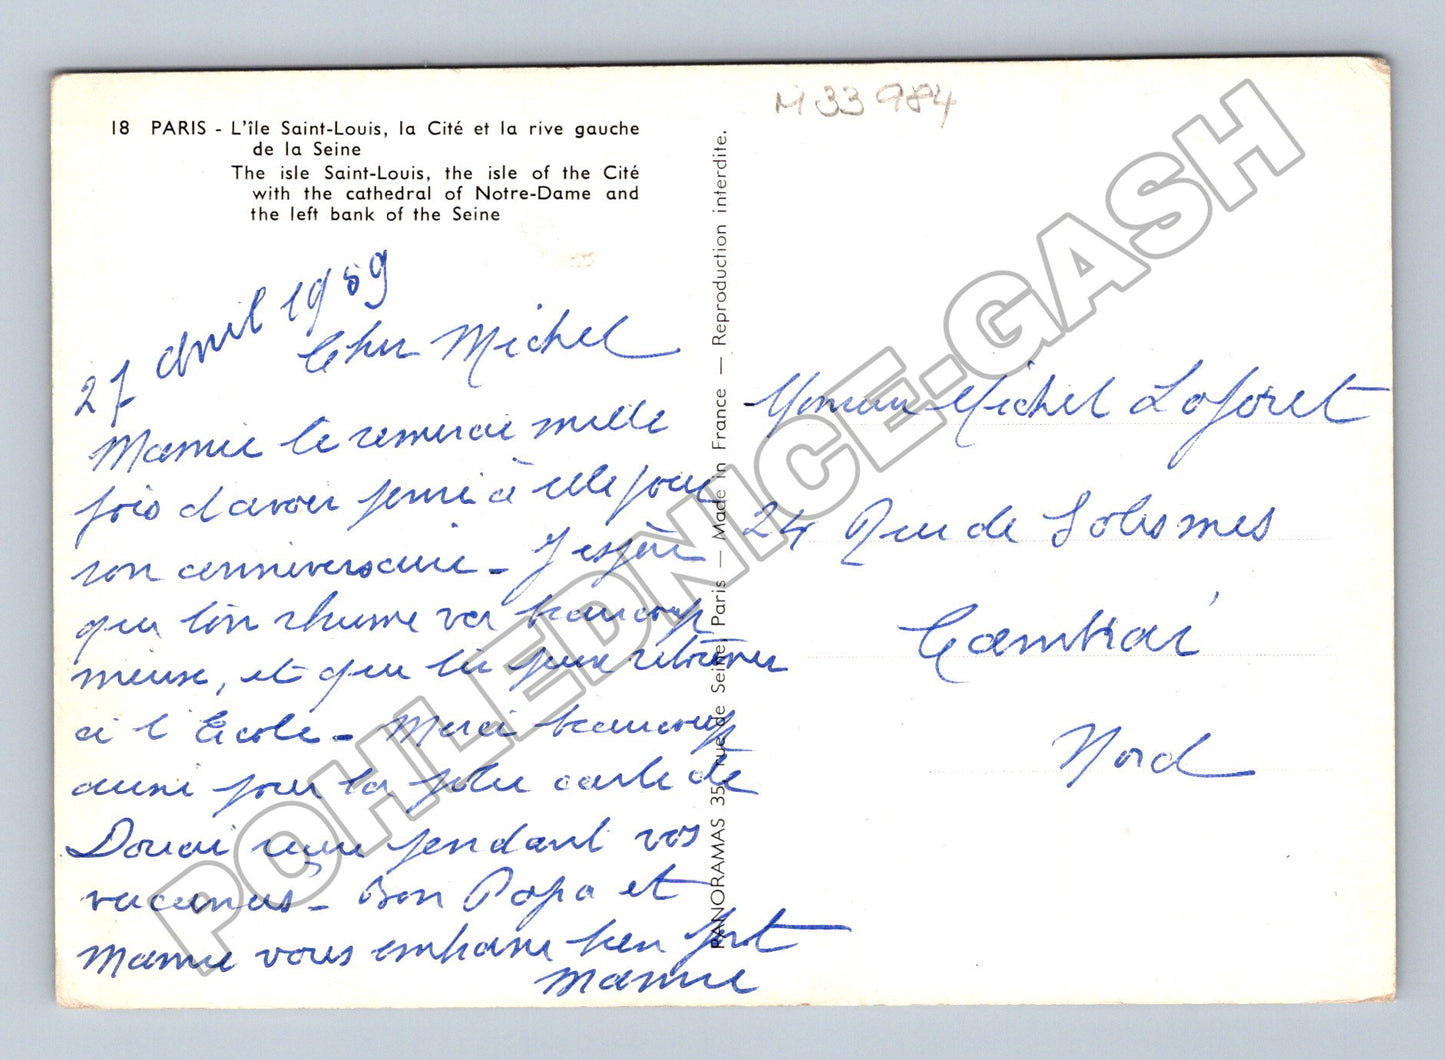 M 33 984
18 PARIS - L'île Saint-Louis, la Cité et la rive gauche
de la Seine
The isle Saint-Louis, the isle of the Cité
with the cathedral of Notre-Dame and
the left bank of the Seine
27 Avril 1959
Cher Michel
Mamie te remercie mille
fois d'avoir pensé à elle pour
son anniversaire - J'espère
que ton rhume va beaucoup
mieux, et que tu peux retourner
à l'Ecole - Merci beaucoup
aussi pour ta jolie carte de
Douai reçue pendant vos
vacances - Bon Papa et
Mamie vous embrasse bien fort
Mamie
PANORAMAS 35, rue de Seine, Paris — Made in France — Reproduction interdite.
Monsieur Michel Laforet
24 Rue de Solesmes
Cambrai
Nord
POHLEDNICE-GASH